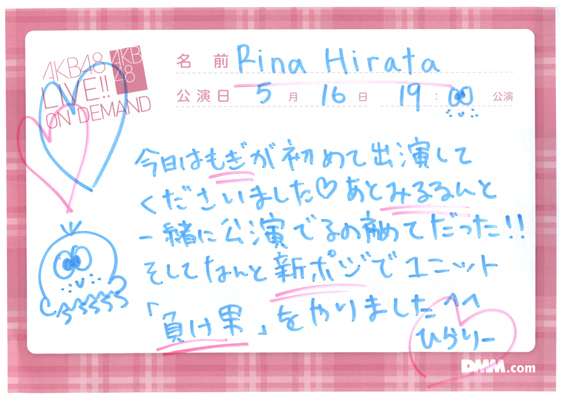 AKB48
LIVE!!
ON DEMAND
AKB
48
名前 Rina Hirata
公演日 5月16日 19: 公演
今日はもぎが初めて出演して
くださいました♡あとみるるんと
一緒に公演でるの初めてだった!!
そしてなんと新ポジでユニット
「負け男」をやりました^^
ひらりー
DMM.com